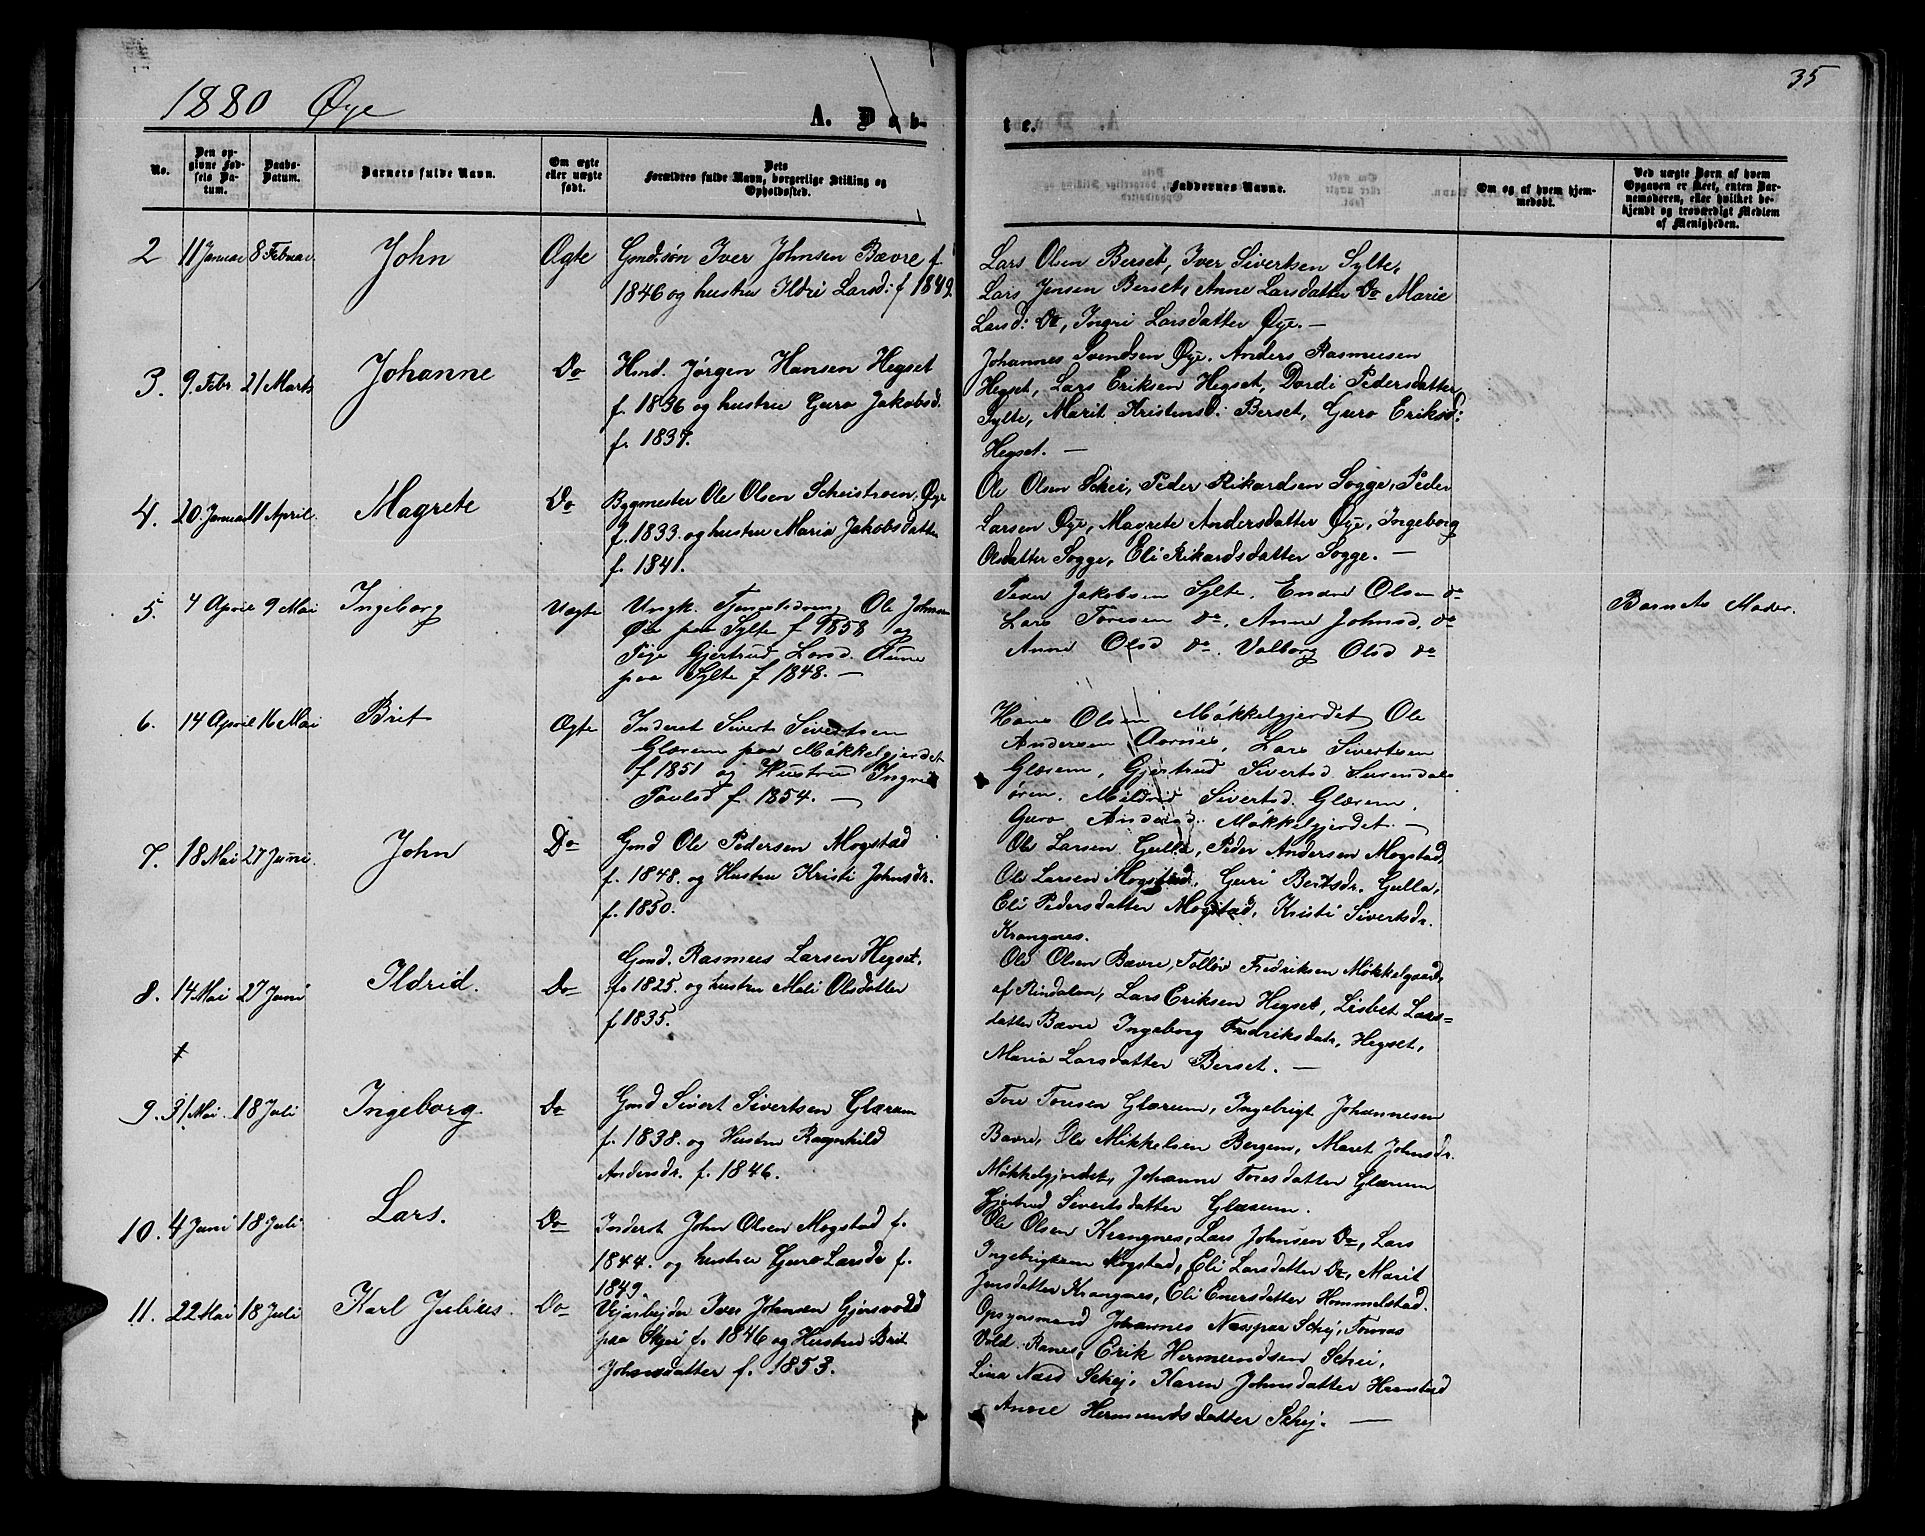 1880 Øye
35
A. Døb-
te.
No.
Den op-
givne Fød-
sels Da-
tum.
Daabs-
Datum.
Barnets fulde Navn.
Om ægte
eller uægte
født.
Dets
Forældres fulde Navn, borgerlige Stilling og
Opholdssted.
Faddernes Navne.
Om og af hvem hjem-
medøbt.
Ved uægte Børn af hvem
Opgaven er skeet, enten Bar-
nemoderen, eller hvilket be-
kjendt og troværdigt Medlem
af Menigheden.
2 11 Januar 8 Februar John Ægte
Gmdsøn Iver Johnsen Bævre f
1846 og hustru Ildri Larsd: f 1849.
Lars Olsen Berset, Iver Sivertsen Sylte,
Lars Jensen Berset, Anne Larsdatter Do Marie
Larsd: Do, Ingri Larsdatter Øye. —
3. 9. Febr. 21 Marts Johanne Do
Hmd. Jørgen Hansen Hegset
f. 1836 og hustru Guro Jakobsd.
f. 1837.
Johannes Svendsen Øye. Anders Rasmusen
Hegset, Lars Eriksen Hegset, Dordi Pedersdatter
Sylte, Marit Kristensd: Berset, Guro Eriksd:
Hegset. —
4. 20 Januar 11 April. Magrete Do
Bygmester Ole Olsen Scheistroen, Øye
f. 1833. og hustru Maria Jakobsdatter
f. 1841.
Ole Olsen Schei, Peder Rikardsen Sogge, Peder
Larsen Øye, Magrete Andersdatter Øye, Ingeborg
Olsdatter Sogge, Eli Rikardsdatter Sogge. —
5. 4 April 9 Mai Ingeborg Uægte
Ungk. Tjenestedreng Ole Johnsen
Øie paa Sylte f 1858 og
Pige Gjertrud Larsd. Aune
paa Sylte f 1848. —
Peder Jakobsen Sylte. Endre Olsen do
Lars Toresen do. Anne Johnsd. do
Anne Olsd do. Valborg Olsd do
Barnets Moder.
6. 14 April 16 Mai Brit Ægte
Inderst Sivert Sivertsen
Glærem paa Møkkelgjerdet
f 1851 og Hustru Ingrid
Paulsd f. 1854. —
Hans Olsen Møkkelgjerdet Ole
Andersen Aarnes, Lars Sivertsen
Glærem, Gjertrud Sivertsd. Surendals
øren. Mildrid Sivertsd. Glærem.
Guro Andersd. Møkkelgjerdet. —
7. 18 Mai 27 Juni. John Do
Gmd Ole Pedersen Mogstad
f. 1848. og Hustru Kristi Johnsdr.
f. 1850.
Ole Larsen Gulla, Peder Andersen Mogstad
Ole Larsen Mogstad, Guri Berntsdr. Gulla,
Eli Pedersdatter Mogstad, Kristi Sivertsdr.
Krangnes.
8. 14 Mai 27 Juni Ildrid. Do
Gmd. Rasmus Larsen Hegset.
f. 1825. og hustru Mali Olsdatter
f 1835.
Ole Olsen Bævre, Tolløv Fredriksen Møkkelgaard,
af Rindalen, Lars Eriksen Hegset, Lisbet Lars=
datter Bævre Ingeborg Fredriksdatr. Hegset,
Maria Larsdatter Berset. —
9. 31 Mai. 18 Juli Ingeborg. Do
Gmd Sivert Sivertsen Glærum
f. 1838. og Hustru Ragnhild
Andersdr. f. 1846.
Tore Toresen Glærum, Ingebrigt Johannesen
Bævre, Ole Mikkelsen Bergem, Maret Johnsdr.
Møkkelgjerdet, Johanne Toresdatter Glærum
Gjertrud Sivertsdatter Glærum.
10. 4 Juni 18 Juli Lars. Do
Inderst John Olsen Mogstad f.
1844. og hustru Guro Larsdr f.
1849.
Ole Olsen Krangnes, Lars Johnsen Do, Lars
Ingebrigtsen Mogstad, Eli Larsdatter Do, Marit
Jensdatter Krangnes, Eli Enersdatter Hommelstad.
11. 22 Mai 18 Juli Karl Julius. Do
Veiarbeider Iver Johnsen Gjersvold
paa Skjei f. 1846 og Hustru Brit
Johnsdatter f. 1853.
Opsynsmand Johannes Næs paa Schej, Tomas
Vold Ranes, Erik Hermundsen Schei,
Lina Næss Schej, Karen Johnsdatter Hamstad
Anne Hermundsdatter Schej. —